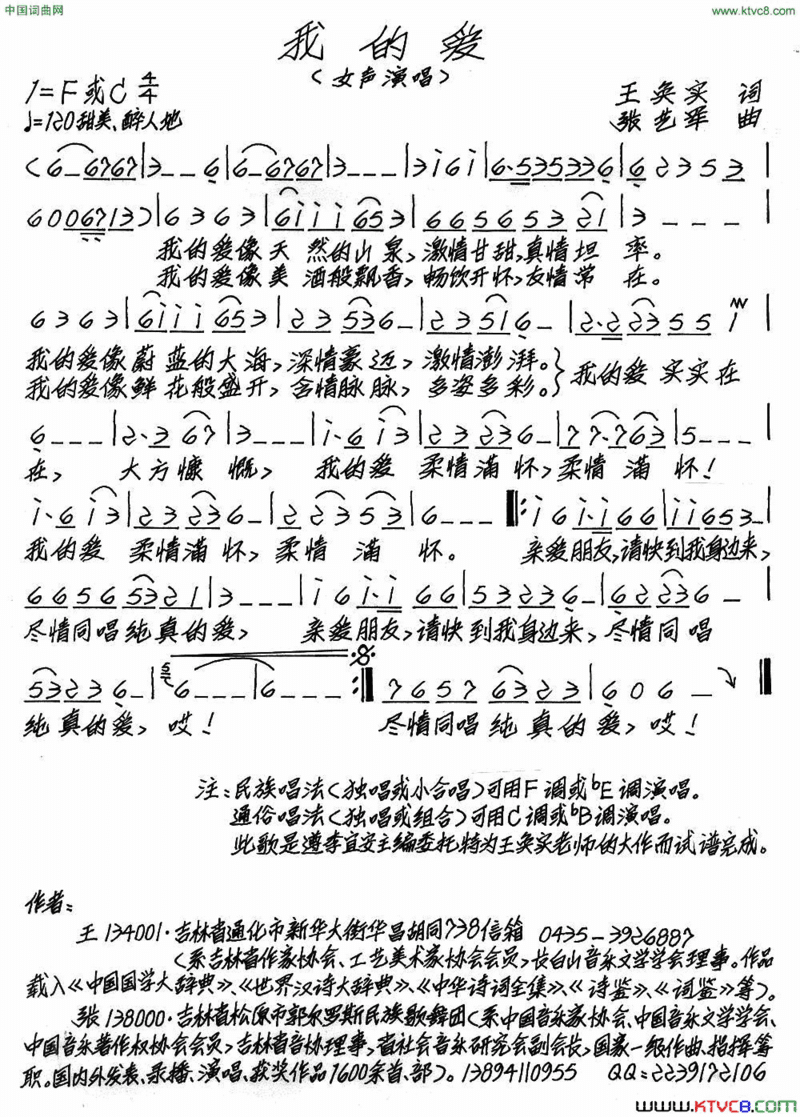 中国词曲网
www.ktvc8.com
我的爱
（女声演唱）
1=F或C 4/4
♩=120 甜美、醉人地
王奂实 词
张艺军 曲
我的爱像天然的山泉，激情甘甜，真情坦率。
我的爱像美酒般飘香，畅饮开怀，友情常在。
我的爱像蔚蓝的大海，深情豪迈，激情澎湃。} 我的爱 实实在
我的爱像鲜花般盛开，含情脉脉，多姿多彩。}
在， 大方慷慨， 我的爱 柔情满怀，柔情满怀！
我的爱 柔情满怀，柔情满怀。 亲爱朋友，请快到我身边来，
尽情同唱纯真的爱， 亲爱朋友，请快到我身边来，尽情同唱
纯真的爱，哎！ 尽情同唱纯真的爱，哎！
注：民族唱法（独唱或小合唱）可用F调或bE调演唱。
通俗唱法（独唱或组合）可用C调或bB调演唱。
此歌是遵李宜安主编委托特为王奂实老师的大作而试谱完成。
作者：
王 134001·吉林省通化市新华大街华昌胡同738信箱 0435-3926887
（系吉林省作家协会、工艺美术家协会会员，长白山音乐文学学会理事。作品
载入《中国国学大辞典》、《世界汉诗大辞典》、《中华诗词全集》、《诗鉴》、《词鉴》等）。
张 138000·吉林省松原市郭尔罗斯民族歌舞团（系中国音乐家协会、中国音乐文学学会、
中国音乐著作权协会会员，吉林省音协理事，省社会音乐研究会副会长，国家一级作曲、指挥等
职。国内外发表、录播、演唱、获奖作品1600余首、部）。13894110955 QQ=2239172106
www.KTVC8.com